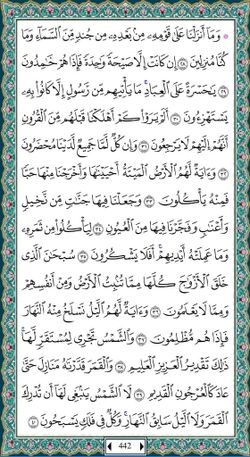 ۞ وَمَآ أَنزَلْنَا عَلَىٰ قَوْمِهِۦ مِنۢ بَعْدِهِۦ مِن جُندٍ مِّنَ ٱلسَّمَآءِ وَمَا
كُنَّا مُنزِلِينَ ٢٨ إِن كَانَتْ إِلَّا صَيْحَةً وَٰحِدَةً فَإِذَا هُمْ خَٰمِدُونَ
٢٩ يَٰحَسْرَةً عَلَى ٱلْعِبَادِ ۚ مَا يَأْتِيهِم مِّن رَّسُولٍ إِلَّا كَانُوا۟ بِهِۦ
يَسْتَهْزِءُونَ ٣٠ أَلَمْ يَرَوْا۟ كَمْ أَهْلَكْنَا قَبْلَهُم مِّنَ ٱلْقُرُونِ
أَنَّهُمْ إِلَيْهِمْ لَا يَرْجِعُونَ ٣١ وَإِن كُلٌّ لَّمَّا جَمِيعٌ لَّدَيْنَا مُحْضَرُونَ
٣٢ وَءَايَةٌ لَّهُمُ ٱلْأَرْضُ ٱلْمَيْتَةُ أَحْيَيْنَٰهَا وَأَخْرَجْنَا مِنْهَا حَبًّا
فَمِنْهُ يَأْكُلُونَ ٣٣ وَجَعَلْنَا فِيهَا جَنَّٰتٍ مِّن نَّخِيلٍ
وَأَعْنَٰبٍ وَفَجَّرْنَا فِيهَا مِنَ ٱلْعُيُونِ ٣٤ لِيَأْكُلُوا۟ مِن ثَمَرِهِۦ
وَمَا عَمِلَتْهُ أَيْدِيهِمْ ۖ أَفَلَا يَشْكُرُونَ ٣٥ سُبْحَٰنَ ٱلَّذِى
خَلَقَ ٱلْأَزْوَٰجَ كُلَّهَا مِمَّا تُنۢبِتُ ٱلْأَرْضُ وَمِنْ أَنفُسِهِمْ
وَمِمَّا لَا يَعْلَمُونَ ٣٦ وَءَايَةٌ لَّهُمُ ٱلَّيْلُ نَسْلَخُ مِنْهُ ٱلنَّهَارَ
فَإِذَا هُم مُّظْلِمُونَ ٣٧ وَٱلشَّمْسُ تَجْرِى لِمُسْتَقَرٍّ لَّهَا ۚ
ذَٰلِكَ تَقْدِيرُ ٱلْعَزِيزِ ٱلْعَلِيمِ ٣٨ وَٱلْقَمَرَ قَدَّرْنَٰهُ مَنَازِلَ حَتَّىٰ
عَادَ كَٱلْعُرْجُونِ ٱلْقَدِيمِ ٣٩ لَا ٱلشَّمْسُ يَنۢبَغِى لَهَآ أَن تُدْرِكَ
ٱلْقَمَرَ وَلَا ٱلَّيْلُ سَابِقُ ٱلنَّهَارِ ۚ وَكُلٌّ فِى فَلَكٍ يَسْبَحُونَ ٤٠
442